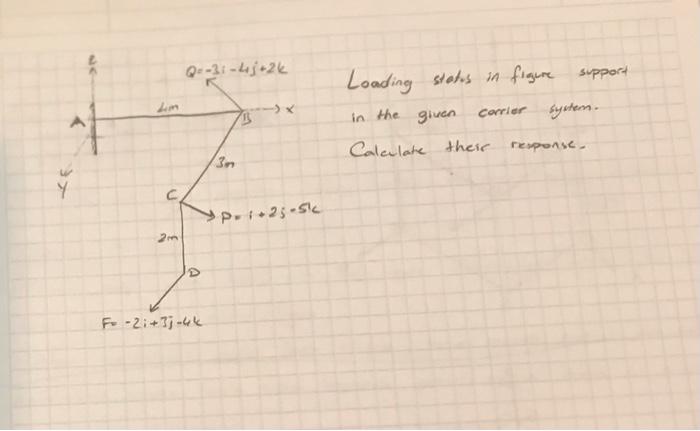 Z
Q=-3i-4j+2k
A
4m
B
X
3m
Y
C
P=i+2j-5k
2m
D
F=-2i+3j-4k
Loading status in figure support
in the given carrier system.
Calculate their response.